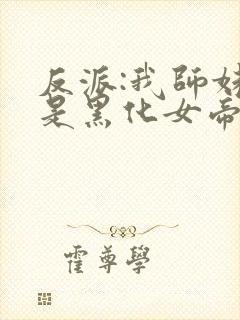 反派:我師姊
是黑化女帝
霍尊學